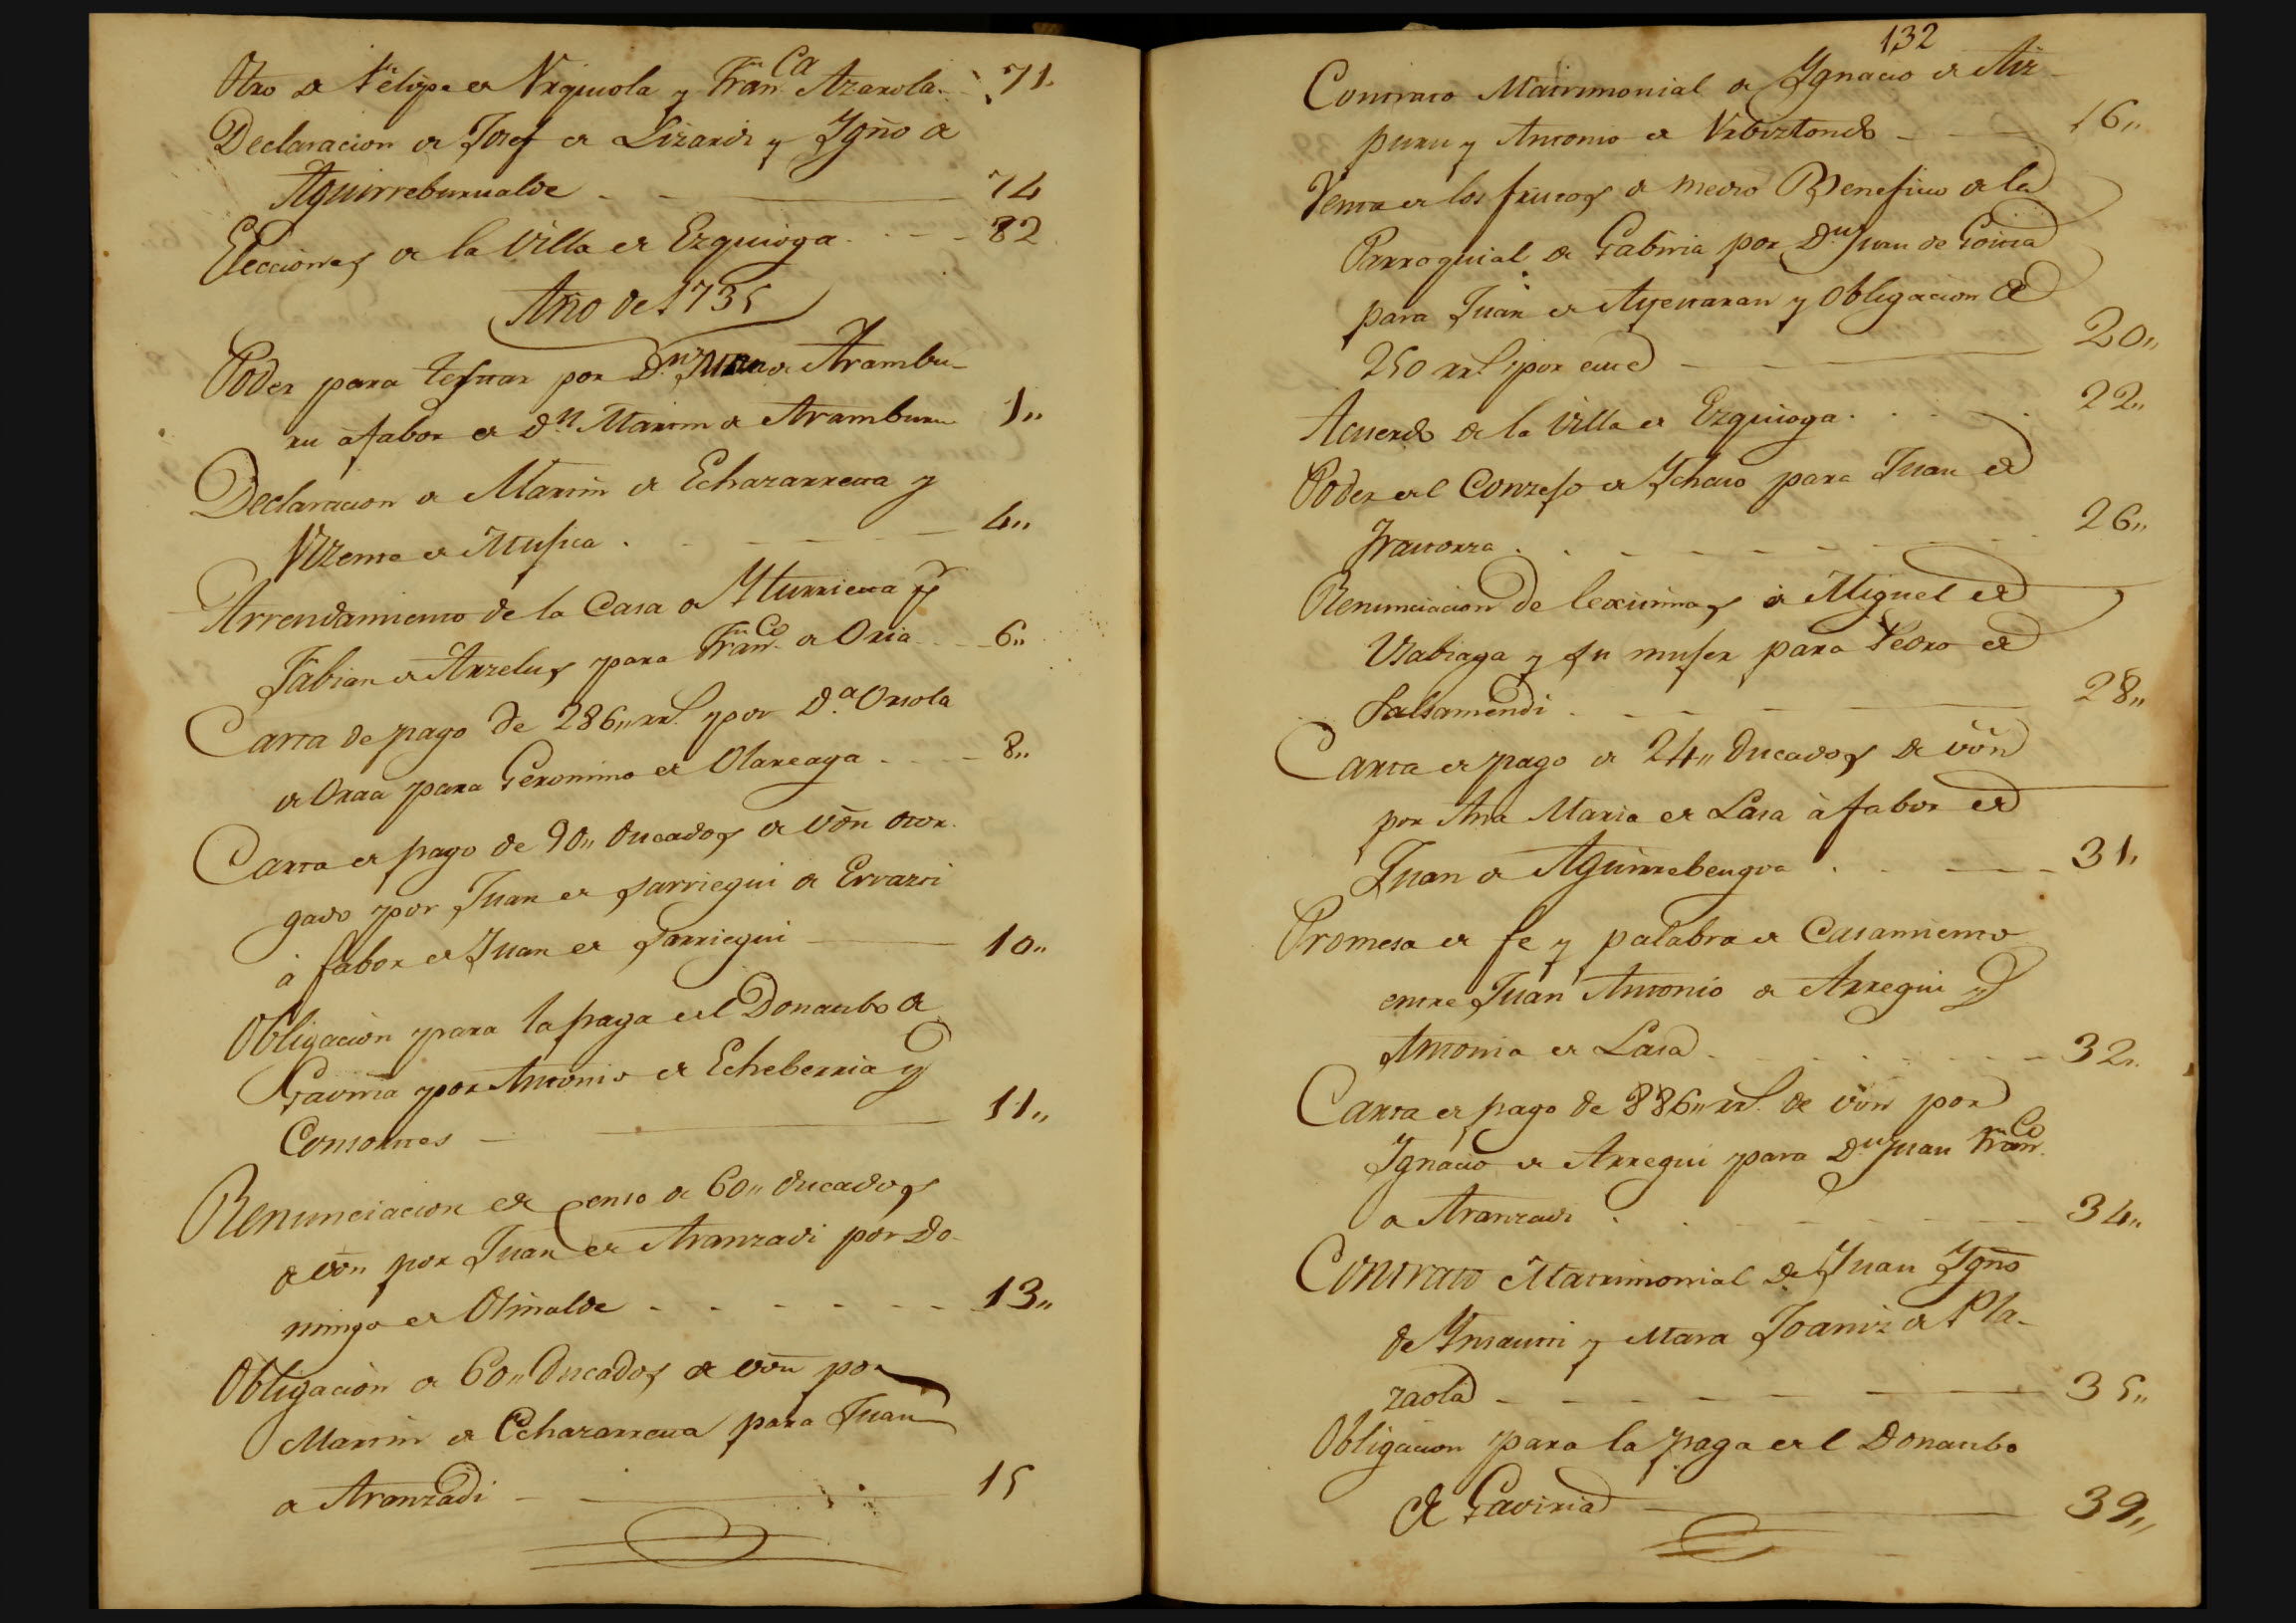 Otro de Felipe de Vrquiola y Fran.ca Azarola. 71.
Declaracion de Josef de Lizardi y Ygño de
Aguirreburualde 74
Elecciones de la Villa de Ezquioga 82
Año de 1735
Poder para testar por D.n Juan de Arambu-
ru à fabor de D.n Martin de Aramburu 1,,
Declaracion de Martin de Echazarreta y
Vizente de Musica 4,,
Arrendamiento de la Casa de Yturrieta pr
Fabian de Arzelus para Fran.co de Oria 6,,
Carta de pago de 286,, rr.s por D.a Orsola
de Oraa para Geronimo de Olareaga 8,,
Carta de pago de 90,, ducados de von otor-
gado por Juan de Sarriegui de Errazti
à fabor de Juan de Sarriegui 10,,
Obligacion para la paga del Donatibo de
Gaviria por Antonio de Echeberria y
Consortes 11,,
Renunciacion de Censo de 60,, ducados
de von por Juan de Aranzadi por Do-
mingo de Otinalde 13,,
Obligacion de 60,, Ducados de von por
Martin de Echazarreta para Juan
de Aranzadi 15
132
Contrato Matrimonial de Ygnacio de Aiz-
puru y Antonio de Vrbiztondo 16,,
Venta de los frutos de medio Beneficio de la
Parroquial de Gabiria por D.n Juan de Goitia
para Juan de Ayerraran y Obligacion de
250 rr.s por este 20,,
Acuerdo de la Villa de Ezquioga 22,,
Poder del Conzejo de Ychaso para Juan de
Yraeorza 26,,
Renunciacion de lexitimas de Miguel de
Vsabiaga y su muger para Pedro de
Salsamendi 28,,
Carta de pago de 24,, Ducados de von
por Ana Maria de Lasa à fabor de
Juan de Aguirrebengoa 31,,
Promesa de fe y palabra de Casamiento
entre Juan Antonio de Arregui y
Antonia de Lasa 32,,
Carta de pago de 886,, rr.s de von por
Ygnacio de Arregui para D.n Juan Fran.co
de Aranzadi 34,,
Contrato Matrimonial de Juan Ygño
de Ynsausti y Mara Joaniz de Pla-
zaola 35,,
Obligacion para la paga del Donatibo
de Gaviria 39,,